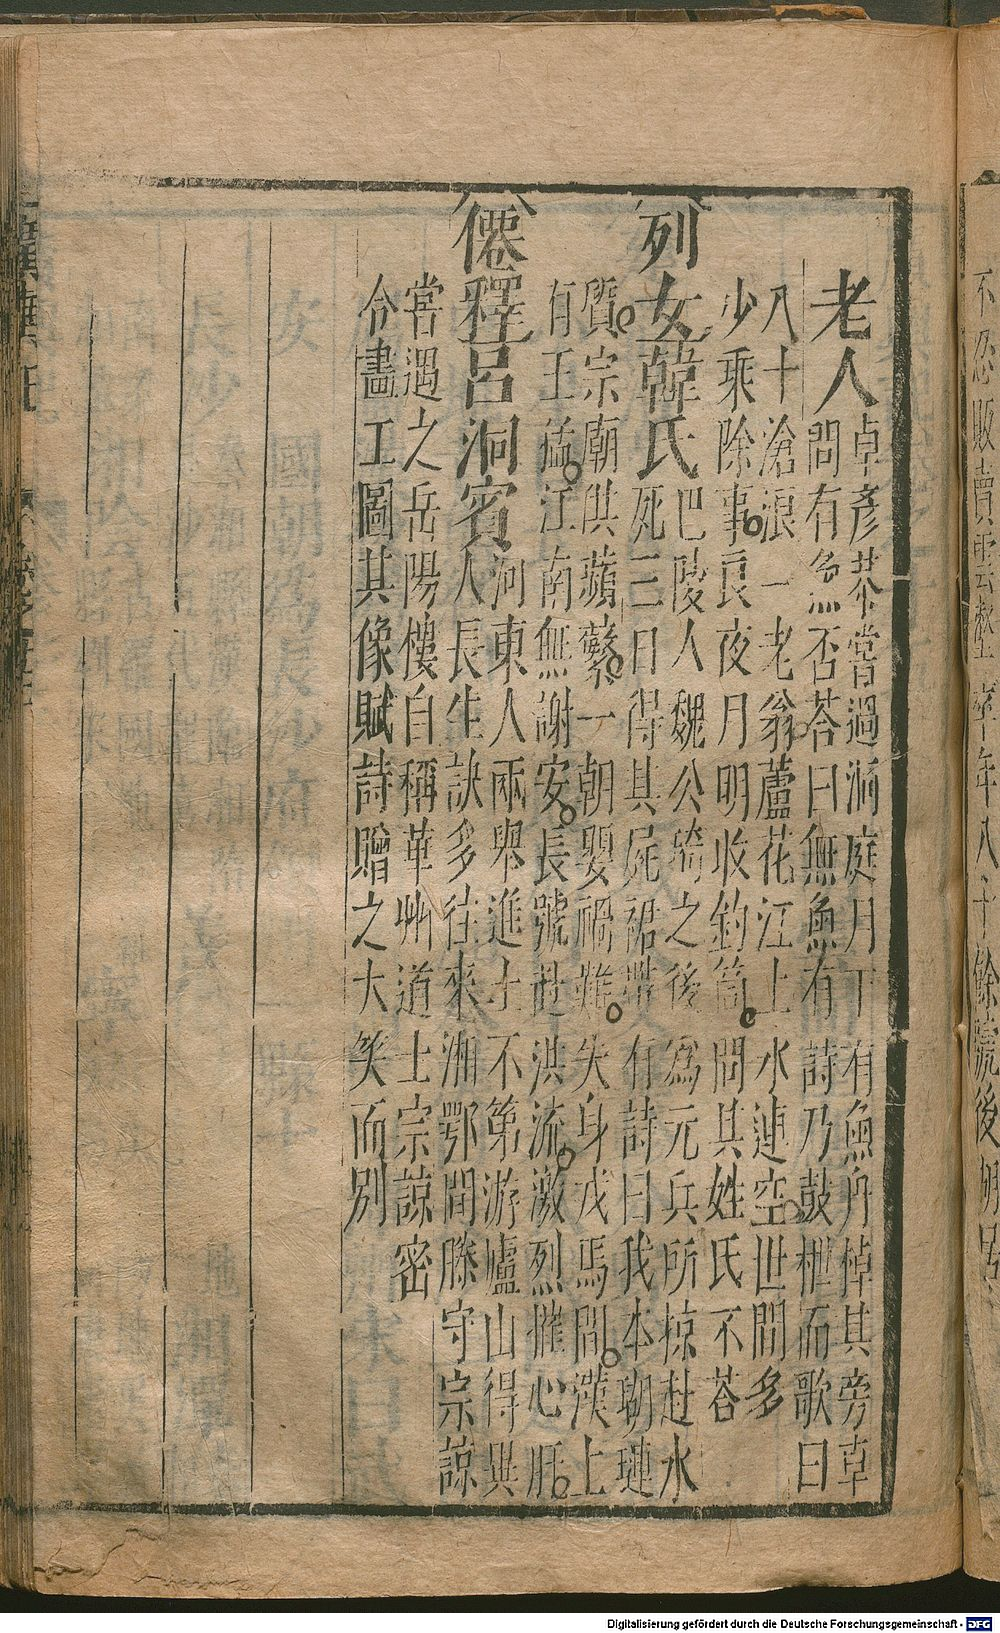 老人
卓彥恭嘗過洞庭月下有魚舟棹其旁卓
問有魚否荅曰無魚有詩乃鼓枻而歌曰
八十滄浪一老翁蘆花江上水連空世間多
少乘除事良夜月明收釣筒問其姓氏不荅
列女
韓氏
巴陵人魏公琦之後為元兵所掠赴水
死三日得其屍裙帶有詩曰我本瑚璉
質宗廟供蘋蘩一朝嬰禍難失身戎馬間漢上
有王猛江南無謝安長號赴洪流激烈摧心肝
僊釋
呂洞賓
河東人兩舉進士不第游廬山得異
人長生訣多往來湘鄂間滕守宗諒
嘗遇之岳陽樓自稱華州道士宗諒密
令畫工圖其像賦詩贈之大笑而別
Digitalisierung gefördert durch die Deutsche Forschungsgemeinschaft - DFG